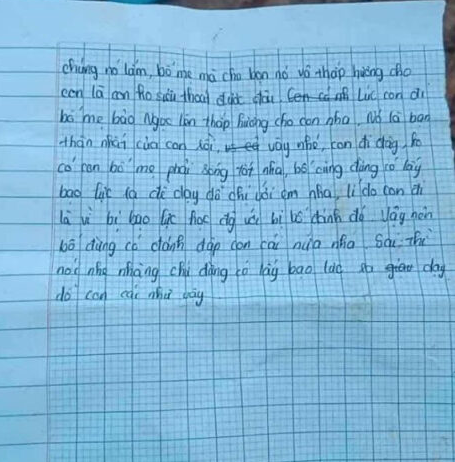 chúng nó lắm, bố mẹ mà cho bọn nó vô thắp hương cho
con là con ko siêu thoát được đâu, Lúc con đi
bố mẹ bảo Ngọc lên thắp hương cho con nha, Nó là bạn
thân nhất của con rồi, vậy nhé, con đi đây, ko
có con bố mẹ phải sống tốt nha, bố cũng đừng có lấy
bạo lực ra để dạy dỗ chị với em nha, lí do con đi
là vì bị bạo lực học đg với bị bố đánh đó vậy nên
bố đừng có đánh đập con cái nữa nha. Sai thì
nói nhẹ nhàng chứ đừng có lấy bạo lực dạy
dỗ con cái như vậy